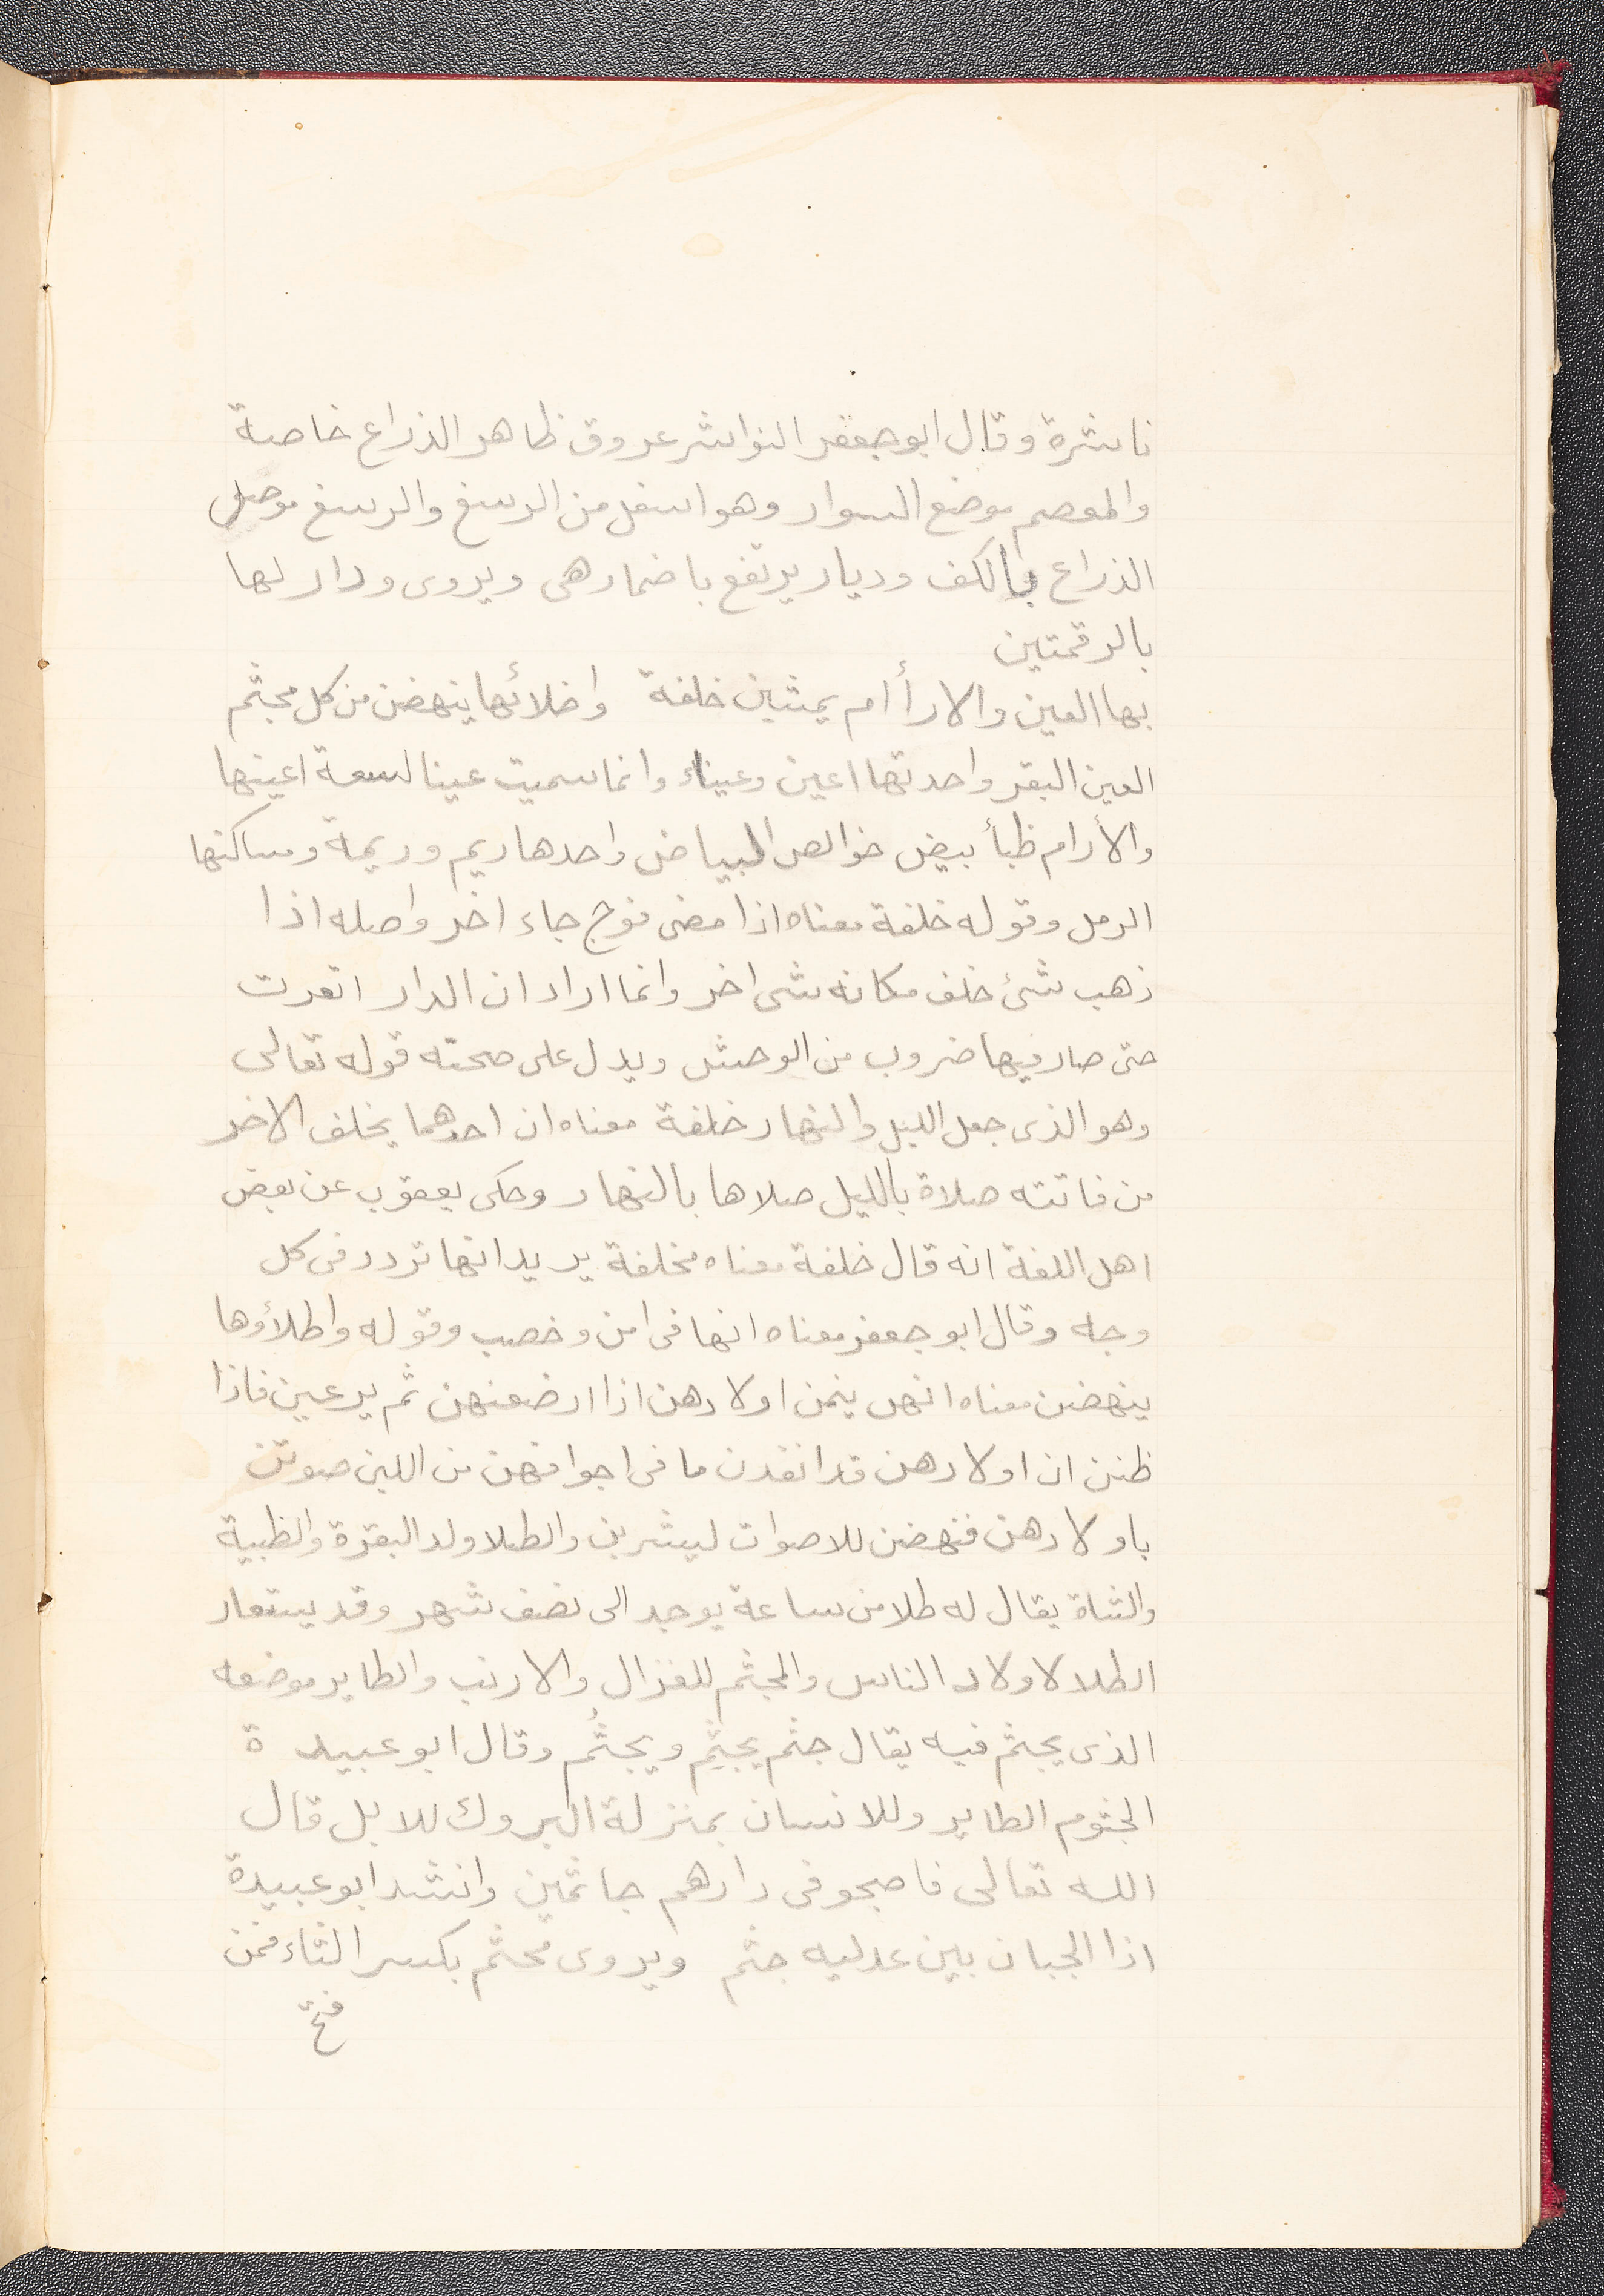 ناشرة وقال ابو جعفر النواشر عروق ظاهر الذراع خاصة
والمعصم موضع السوار وهو اسفل من الرسغ والرسغ موصل
الذراع بالكف وديار يرتفع باضمار هى ويروى ودار لها
بالرقمتين
بها العين والارأام يمشين خلفة واطلائها ينهضن من كل مجثم
العين البقر واحدتها اعين وعيناء وانما سميت عينا لسعة اعينها
والأرام ظبأ بيض خوالص البياض واحدها ريم وريمة ومساكنها
الرمل وقوله خلفة معناه اذا مضى فوج جاء اخر واصله اذا
ذهب شئ خلف مكانه شى اخر وانما اراد ان الدار اقفرت
حتى صار فيها ضروب من الوحش ويدل على صحته قوله تعالى
وهو الذى جعل الليل والنهار خلفة معناه ان احدهما يخلف الاخر
من فاتته صلاة بالليل صلاها بالنهار وحكى يعقوب عن بعض
اهل اللغة انه قال خلفة معناه مخلفة يريد انها تردد فى كل
وجه وقال ابو جعفر معناه انها فى امن وخصب وقوله واطلأوها
ينهضن معناه انهن ينمن اولادهن اذا ارضعنهن ثم يرعين فاذا
ظنن ان اولادهن قد انفدن ما فى اجوافهن من اللبن صوتن
باولادهن فنهضن للاصوات ليشربن والطلا ولد البقرة والظبية
والشاة يقال له طلا من ساعة يوجد الى نصف شهر وقد يستعار
الطلا لاولاد الناس والمجثم للغزال والارنب والطاير موضعه
الذى يجثم فيه يقال جثم يجثِم ويجثُم وقال ابو عبيدة
الجثوم الطاير وللانسان بمنزلة البروك للابل قال
الله تعالى فاصبحو فى دارهم جاثمين وانشد ابو عبيدة
اذا الجبان بين عدليه جثم ويروى مجثم بكسر الثاء فمن
فتح